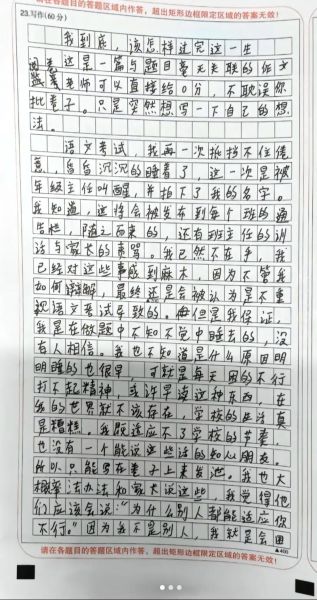 请在各题目的答题区域内作答,超出矩形边框限定区域的答案无效!
23.写作(60分)
我到底,该怎样过完这一生
阅卷 这是一篇与题目毫无关联的作文
监考老师可以直接给0分,不耽误你
批卷子。只是突然想写一下自己的想
法。
语文考试,我再一次抵挡不住倦
意,昏昏沉沉的睡着了,这一次是被
年级主任叫醒,并拍下了我的名字。
我知道,这将会被发布到每个班的通
告栏,随之而来的,还有班主任的训
话与家长的责骂。我已然不在乎,我
已经对这些事感到麻木,因为不管我
如何辩解,最终还是会被认为是不重
视语文考试导致的。但是我保证,
我是在做题中不知不觉中睡去的,没
有人相信。我也不知道是什么原因明
明睡的也很早,可就是每天困的不行
打不起精神,或许早读这种东西,在
我的世界就不该存在,学校的生活真
是糟糕。我既适应不了学校的节奏,
也没有一个能说这些话的知心朋友。
所以只能写在卷子上来发泄。我也大
概率无法办法和家长说这些,我觉得他
们应该会说:“为什么别人都能适应你
不行。”因为我不是别人,我就是会困
▲400
请在各题目的答题区域内作答,超出矩形边框限定区域的答案无效!